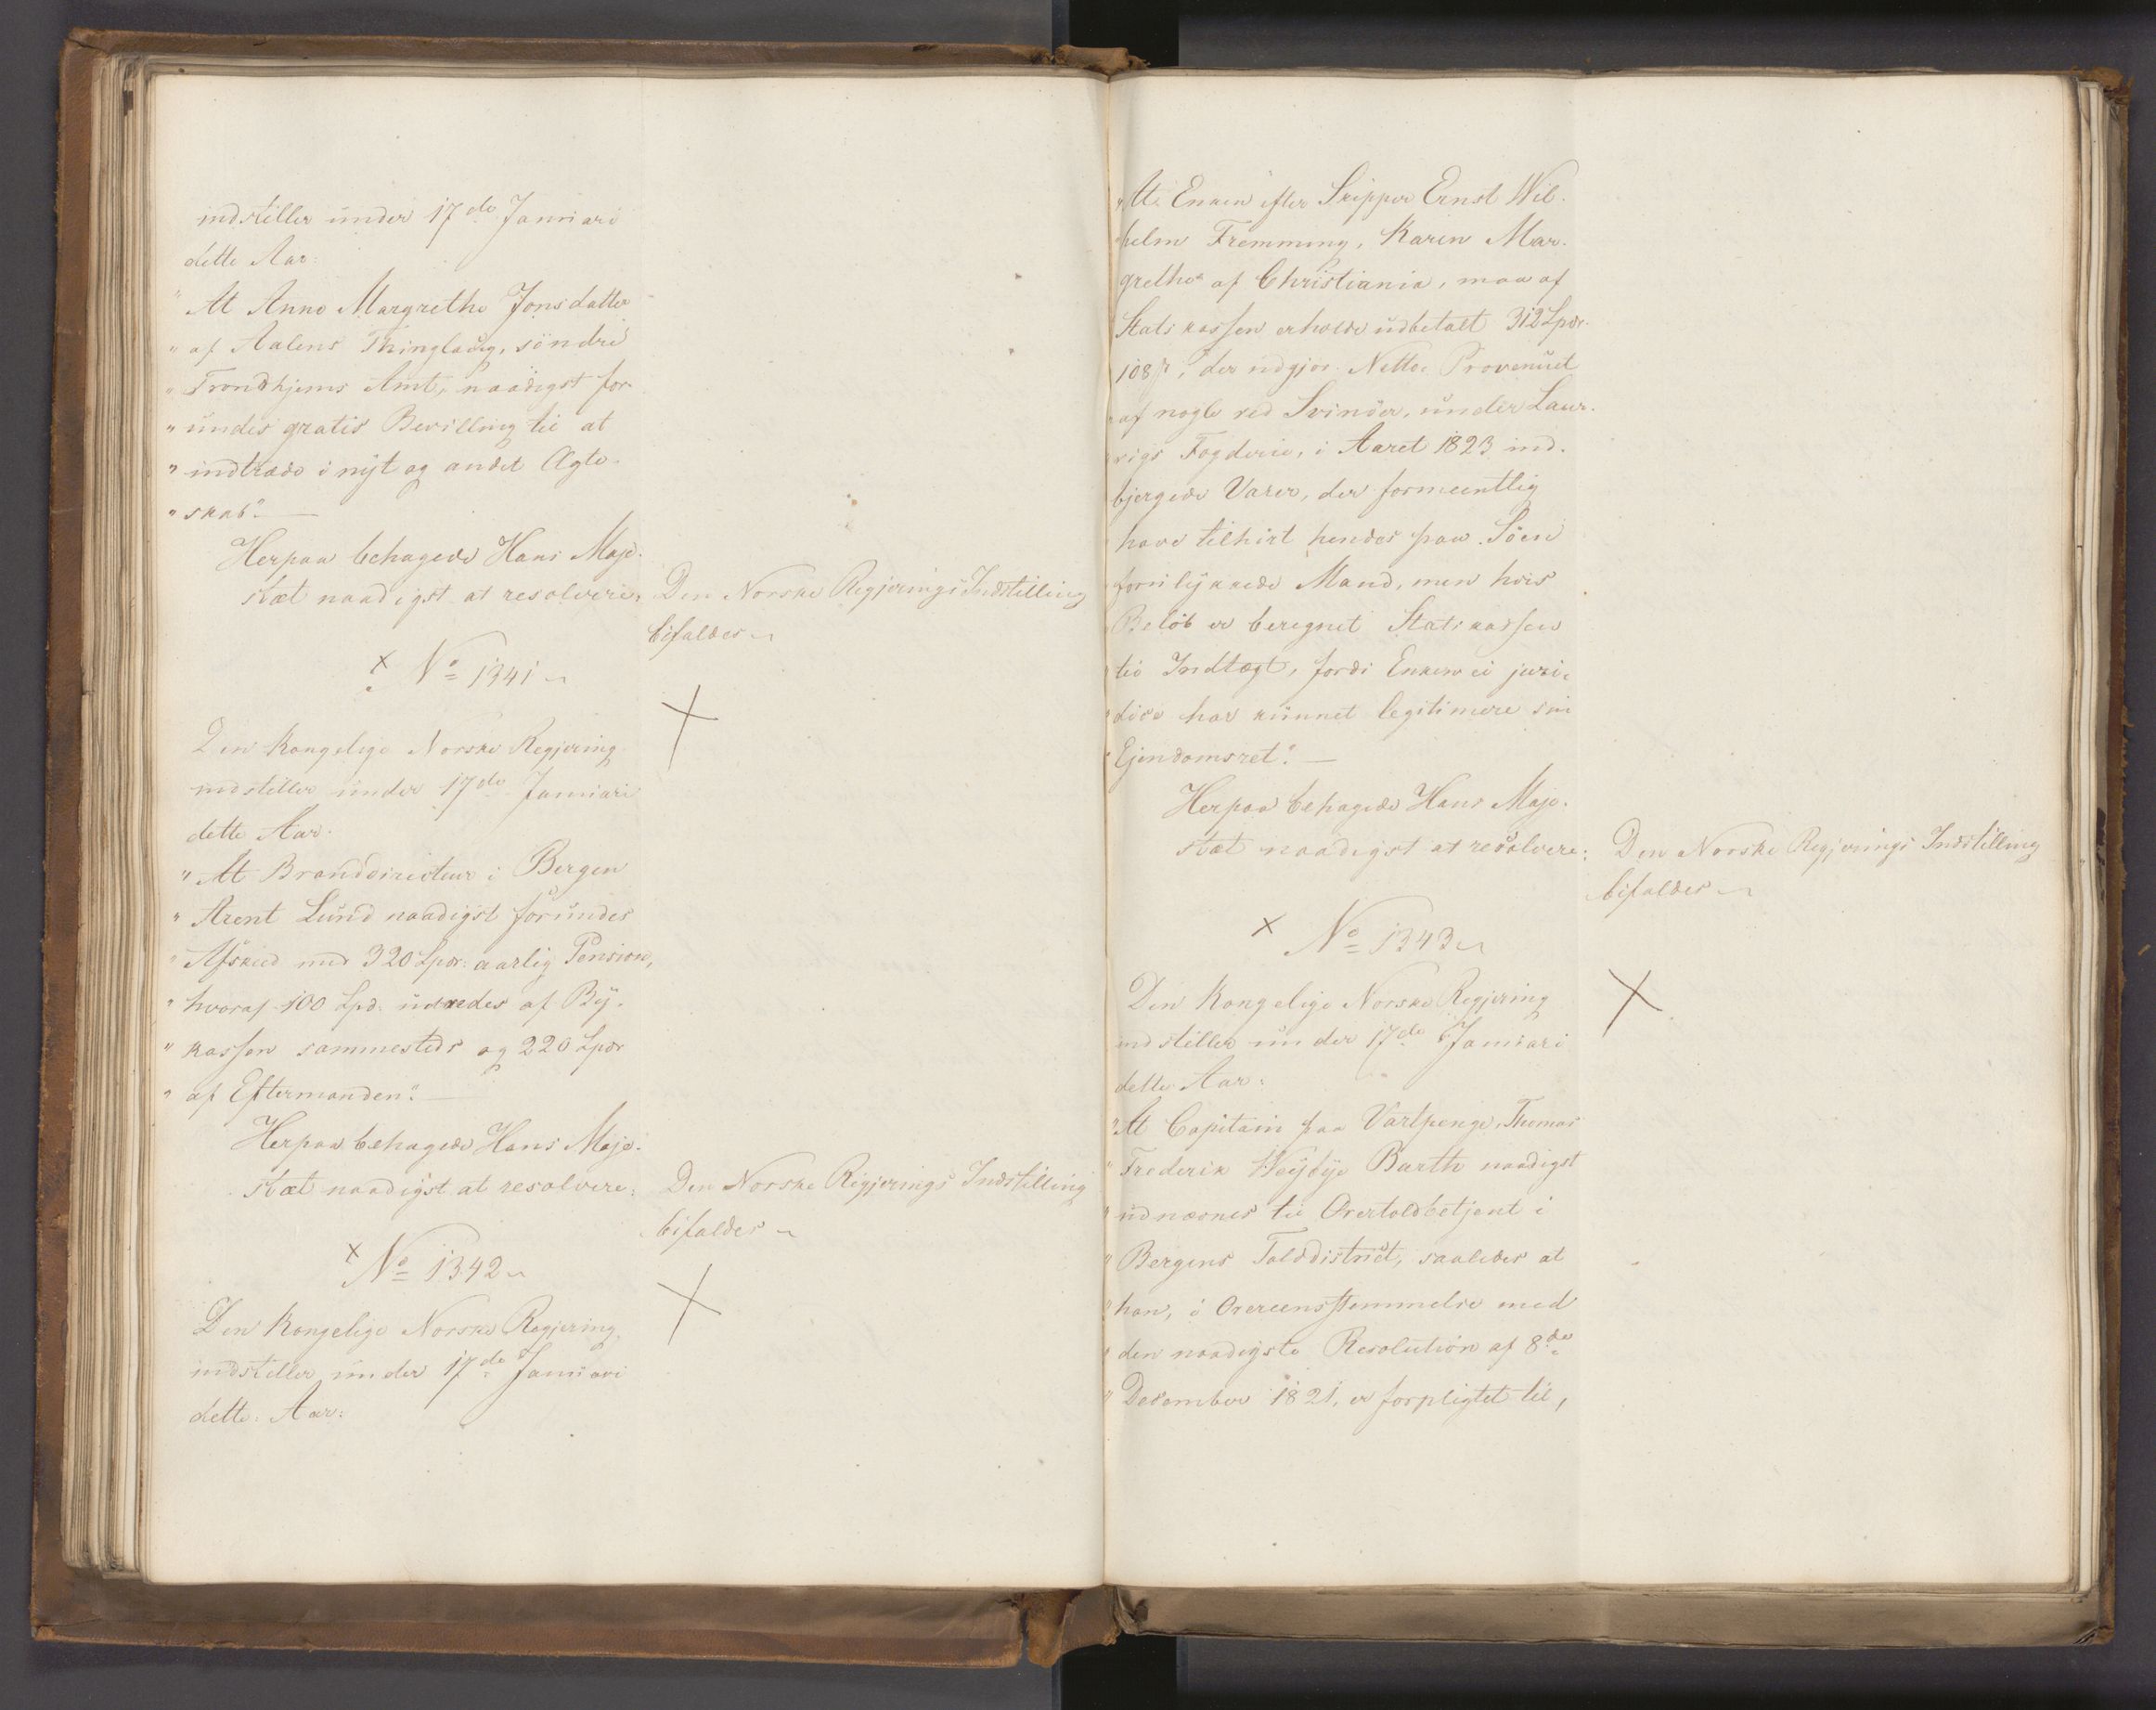 indstiller under 17de Januari
dette Aar:
"At Anne Margrethe Jonsdatter
"af Aalens Thinglaug, söndre
"Trondhjems Amt, naadigst for-
"undes gratis Bevilling til at
"indtræde i nyt og andet Ægte-
"skab". —
Herpaa behagede Hans Maje-
stæt naadigst at resolvere:
Den Norske Regjerings Indstilling
bifaldes
× No 1341
Den Kongelige Norske Regjering
indstiller under 17de Januari
dette Aar:
"At Branddirecteur i Bergen
"Arent Lund naadigst forundes
"Afskeed med 320 Spdr: aarlig Pension,
"hvoraf 100 Spd: udredes af By-
"kassen sammesteds og 220 Spdr
"af Eftermanden". —
Herpaa behagede Hans Maje-
stæt naadigst at resolvere:
Den Norske Regjerings Indstilling
bifaldes
× No 1342
Den Kongelige Norske Regjering
indstiller under 17de Januari
dette Aar:
"At Enken efter Skipper Ernst Wil-
"helm Flemming, Karen Mar-
"grethe af Christiania, maa af
"Statskassen erholde udbetalt 312 Spdr.
"108 ß, der udgjør Netto Provenuet
"af nogle ved Svinöer, under Laur-
"vigs Fogderie, i Aaret 1823 ind-
"bjergede Varer, der formeentlig
"have tilhört hendes paa Söen
"forulykkede Mand, men hvis
"Belöb er beregnet Statskassen
"til Indtægt, fordi Enken ei juri-
"dice har kunnet legitimere sin
"Ejendomsret". —
Herpaa behagede Hans Maje-
stæt naadigst at resolvere:
Den Norske Regjerings Indstilling
bifaldes
× No 1343
Den Kongelige Norske Regjering
indstiller under 17de Januari
dette Aar:
"At Capitain paa Vartpenge, Thomas
"Frederik Barth naadigst
"udnævnes til Overtoldbetjent i
"Bergens Tolddistrict, saaledes at
"han, i Overeensstemmelse med
"den naadigste Resolution af 8de
"December 1821, er forpligtet til,